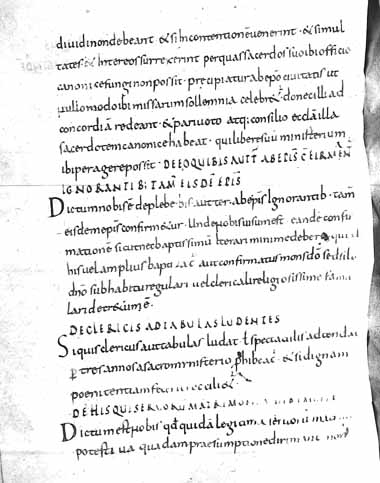 dividi non debeant & si in contentione venerint · & simul
tates & inter eos surrexerint per quas sacerdos suo ibi officio
canonice fungi non possit · precipiatur ab epo civitatis ut
nullo modo ibi missarum sollemnia celebr& donec illi ad
concordiā redeant · & pari voto atq; consilio & illa
sacerdotem canonice habeat · qui libere suū ministerium
ibi peragere possit · DE EO QUI BIS AUT T̄ AB EPIS
IGNORANTIB; TAM̄ EISDĒ EPIS
Dictum nobis ē de plebe bis aut ter ab epis ignorantib · tam̄
eisdem epis confirm&ur · Unde nobis visum est · eandē confir
matione sicut nec baptismū iterari minime debere quid
his vel amplius baptizat aut confirmatus non s̄ d̄o sed
dn̄o sub habitu regulari vel clericali religiosissime famu
lari decr&um ē ·
DE CLERICIS AD TABULAS LUDENTES
Si quis clericus aut tabulas ludat t spectaculis adtendat
p tres annos a sacro ministerio phibeat · & si dignam
poenitentiam
DE HIS QUI SERVORUM MATRIMONIA
Dictum est nobis qd quidā legitima servorū matri
potestiva quadam praesumptione dirimant non